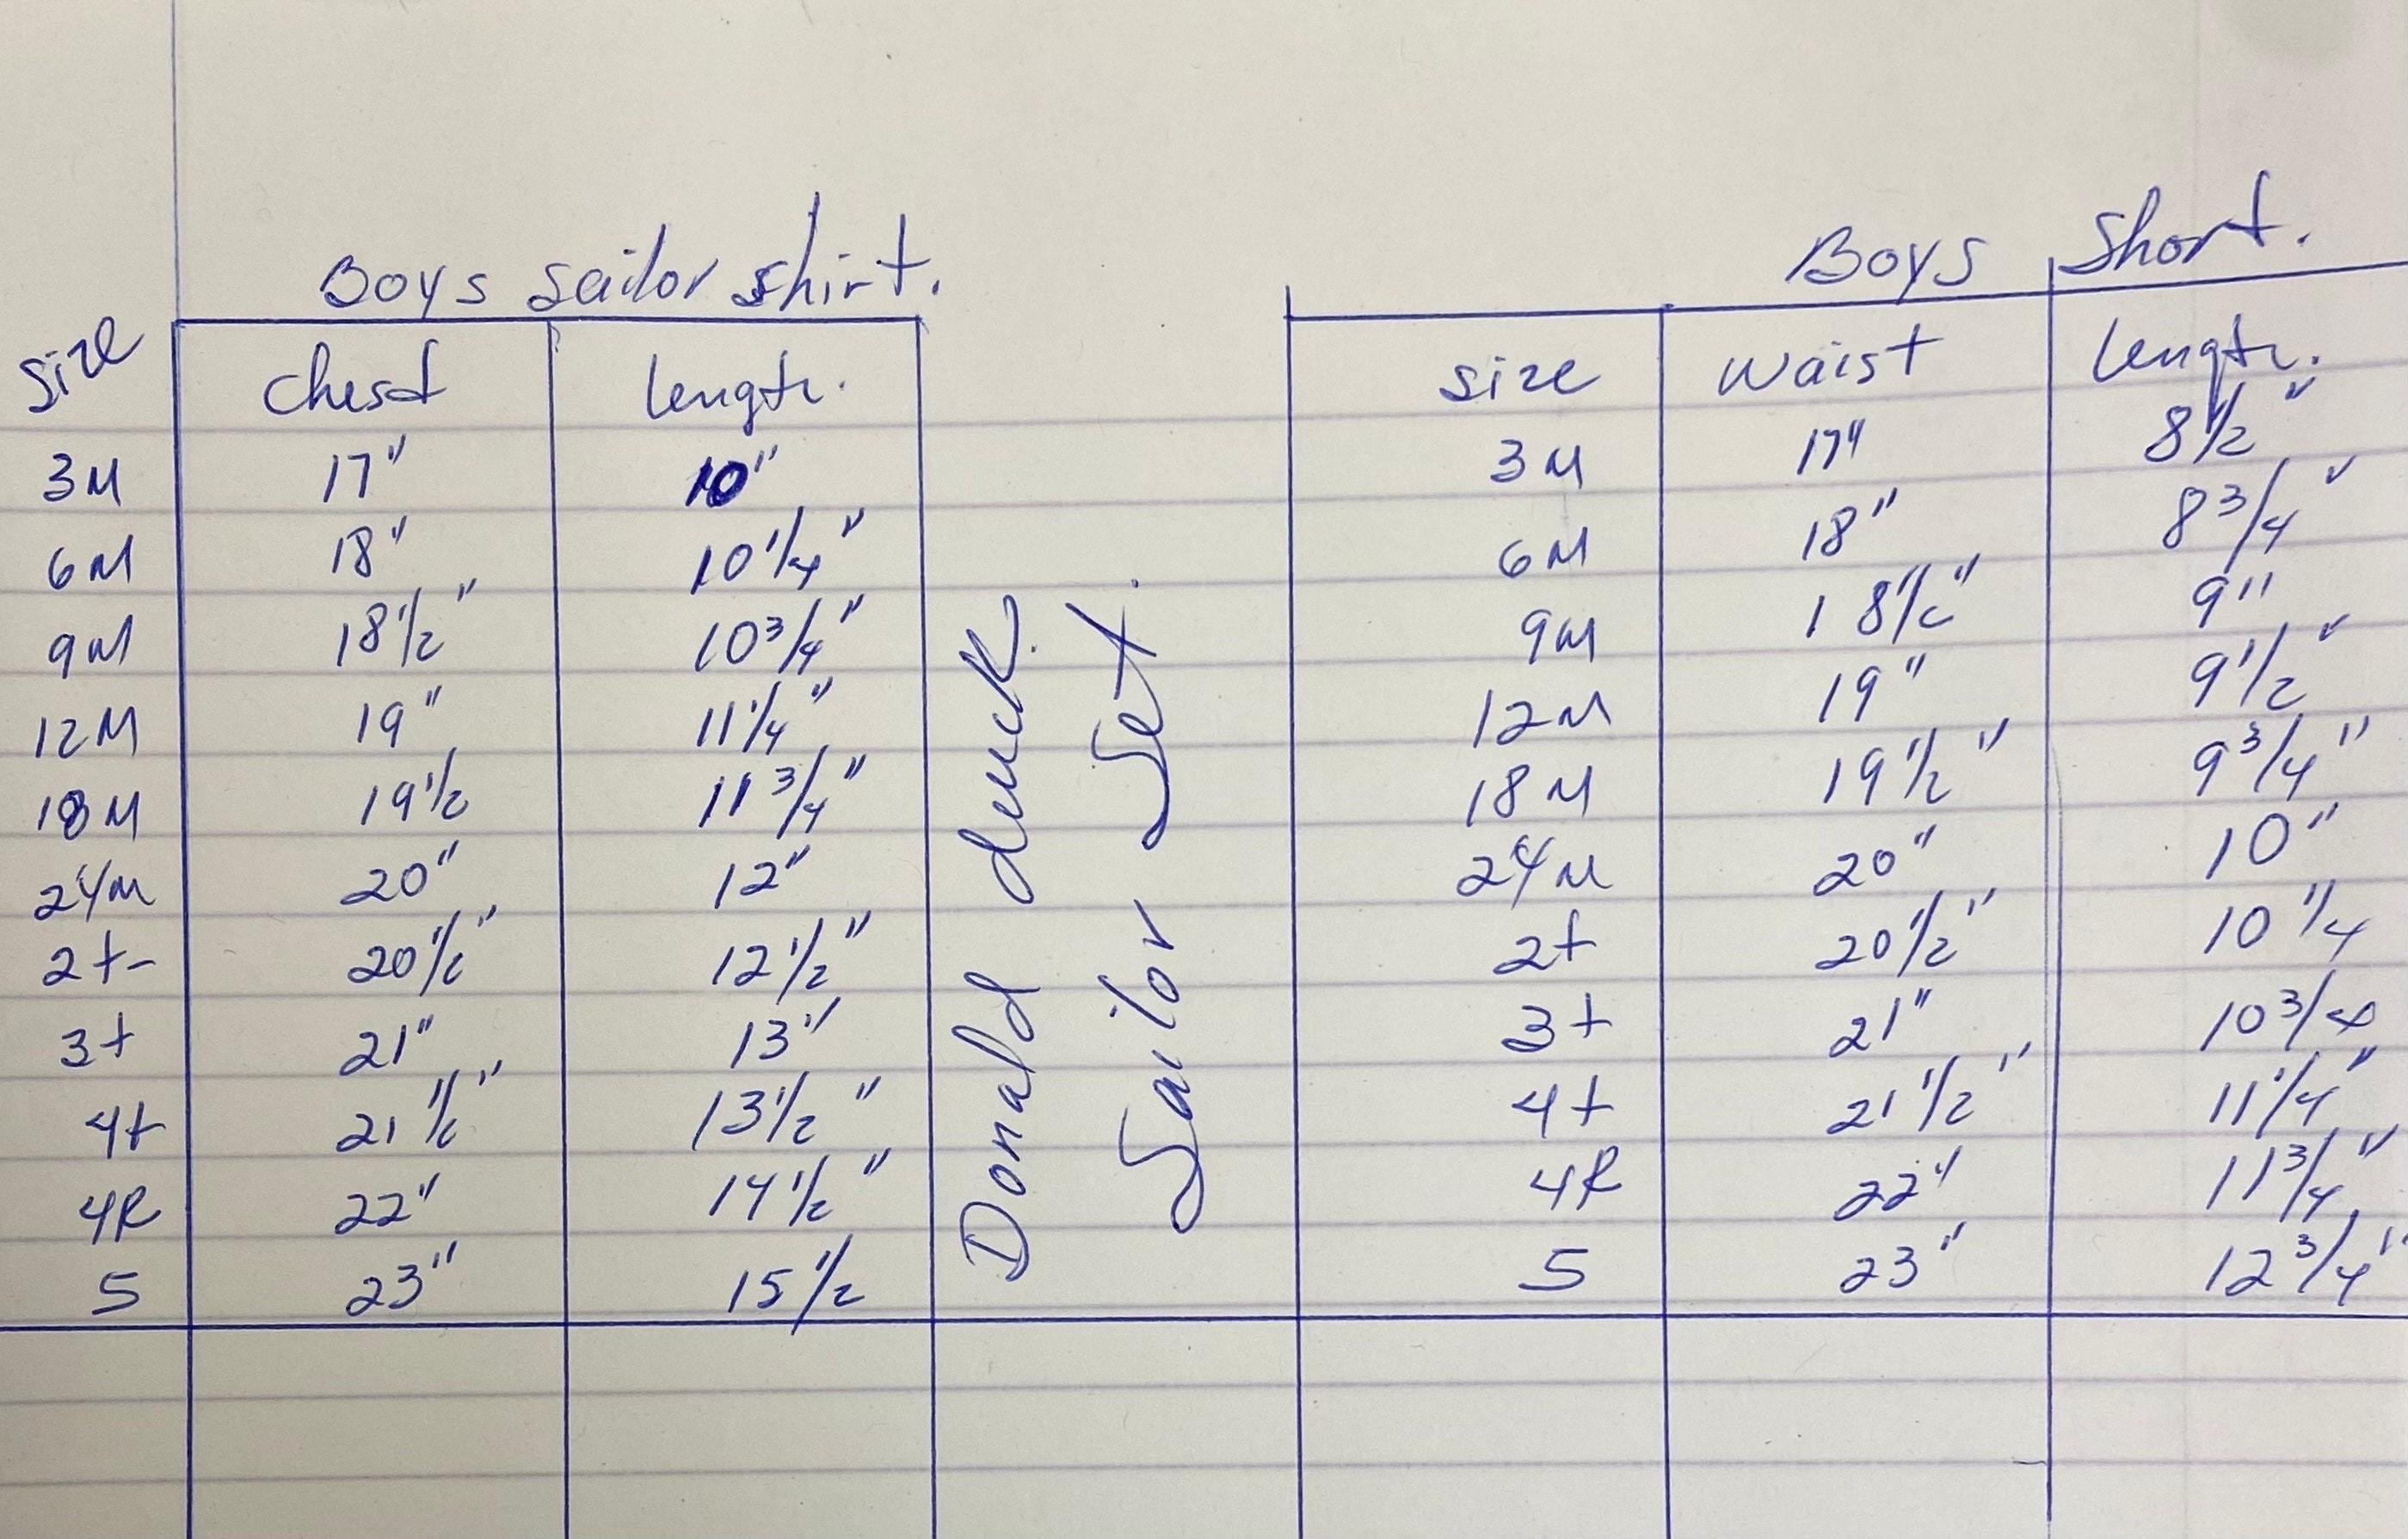 Boys sailor shirt.
Size Chest length.
3M 17" 10"
6M 18" 10 1/4"
9M 18 1/2" 10 3/4"
12M 19" 11 1/4"
18M 19 1/2 11 3/4"
24M 20" 12"
2t- 20 1/2" 12 1/2"
3t 21" 13"
4t 21 1/2" 13 1/2"
4R 22" 14 1/2"
5 23" 15 1/2
Donald duck.
Sailor Set.
Boys Short.
size waist length.
3M 17" 8 1/2"
6M 18" 8 3/4"
9M 18 1/2" 9"
12M 19" 9 1/2"
18M 19 1/2" 9 3/4"
24M 20" 10"
2t 20 1/2" 10 1/4
3t 21" 10 3/4
4t 21 1/2" 11 1/4"
4R 22" 11 3/4"
5 23" 12 3/4"